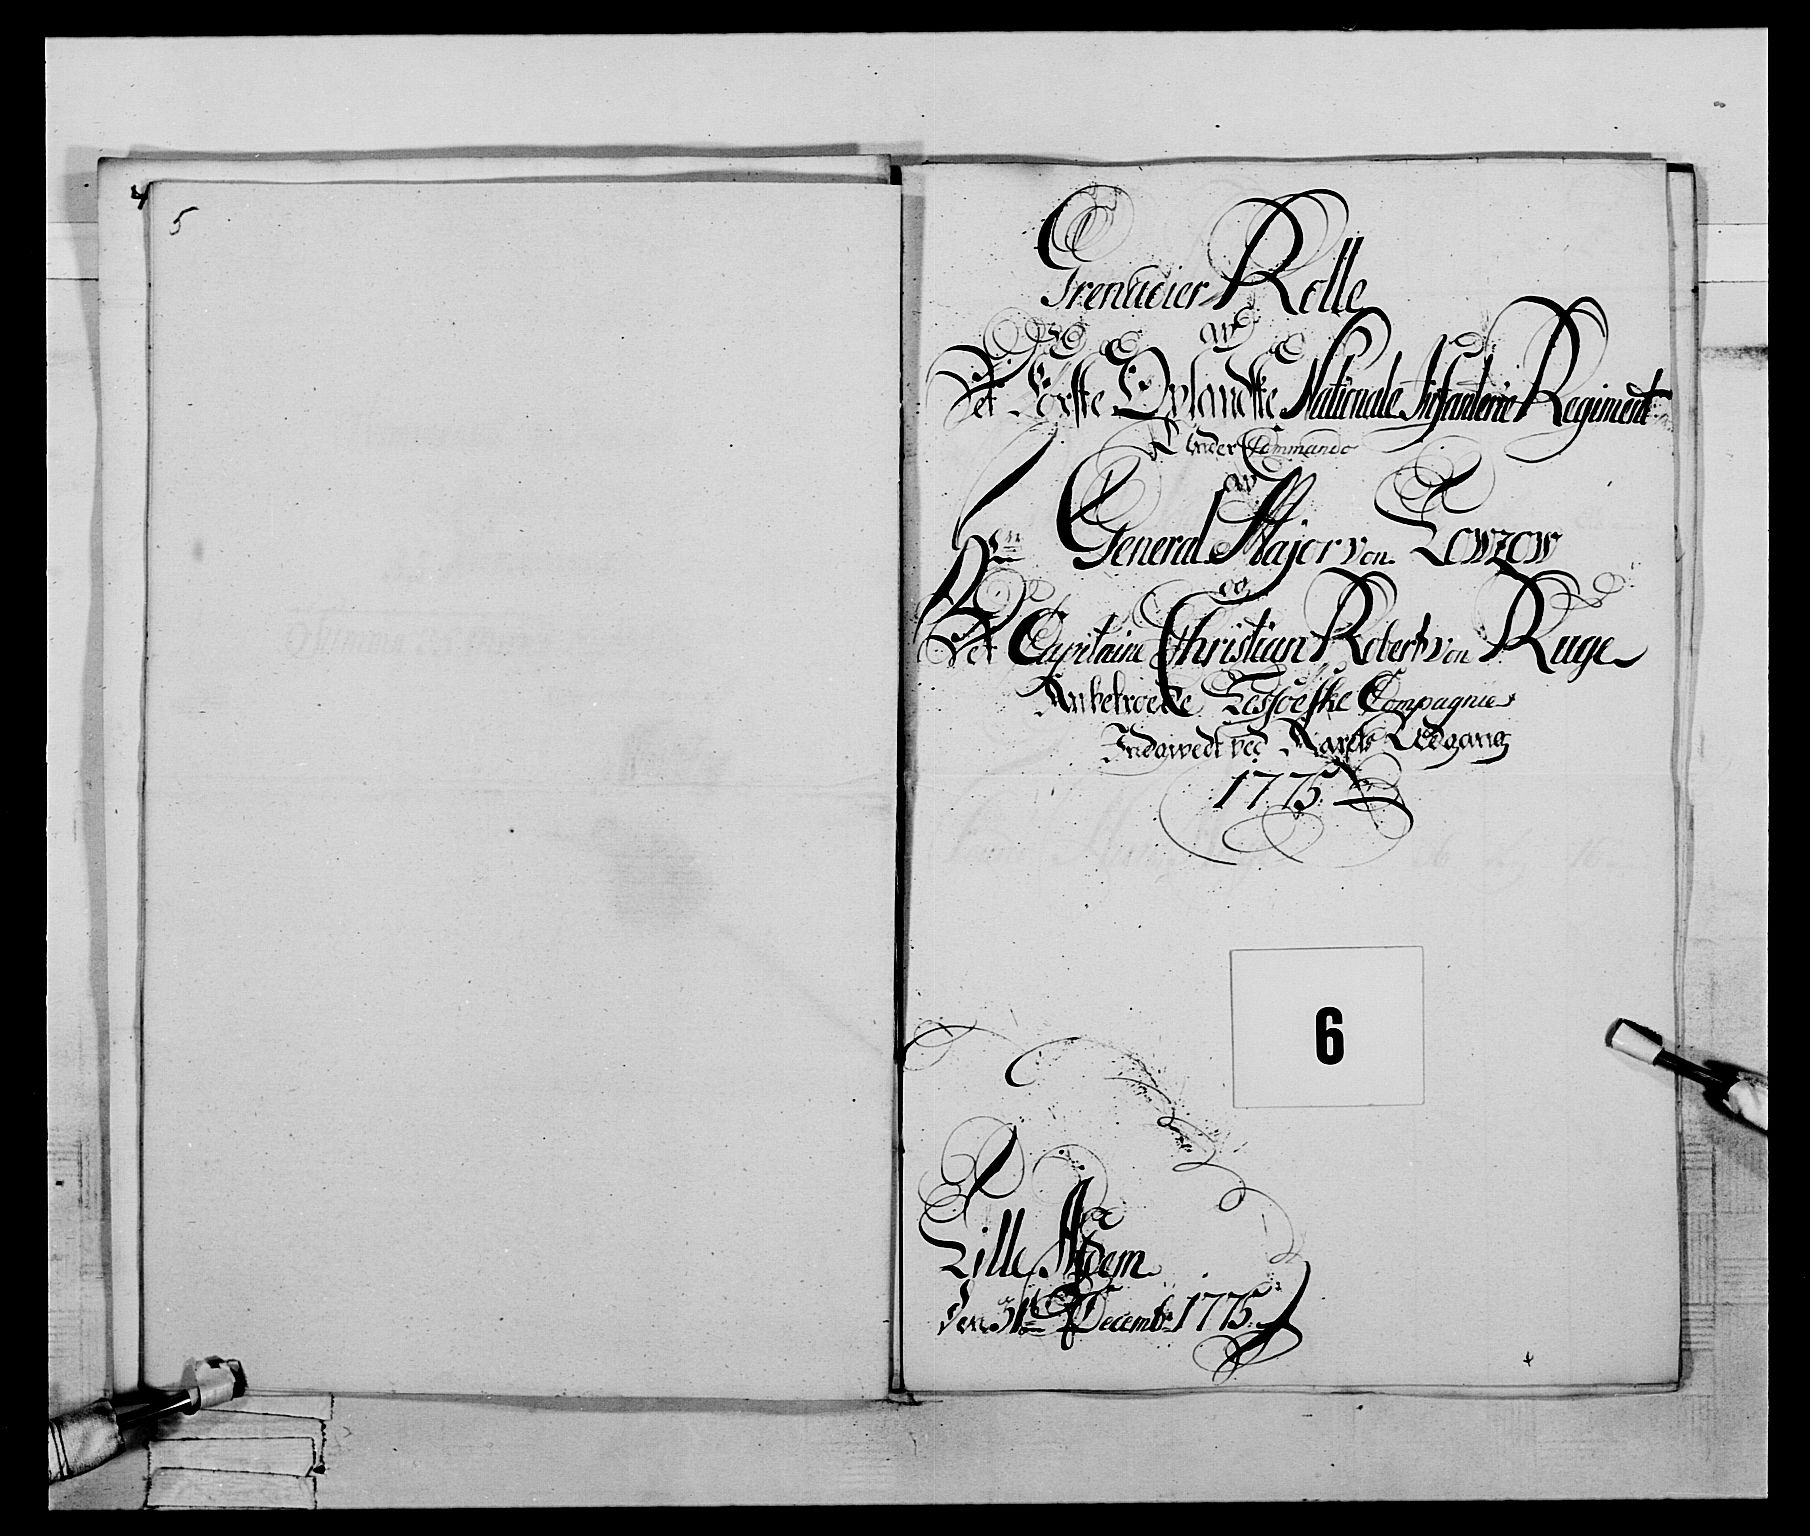 4
5
Grenadier Rolle
av
Det Første Oplandske Nationale Infanterie Regiment
Under Commando
av
Hrn General Major von Lowzow
og
Det Capitaine Christian Robert von Ruge
Anbetroede Lessøeske Compagnie
Indgivedt ved Aarets Udgang
1775
6
Lille
Den 31te Decembr 1775